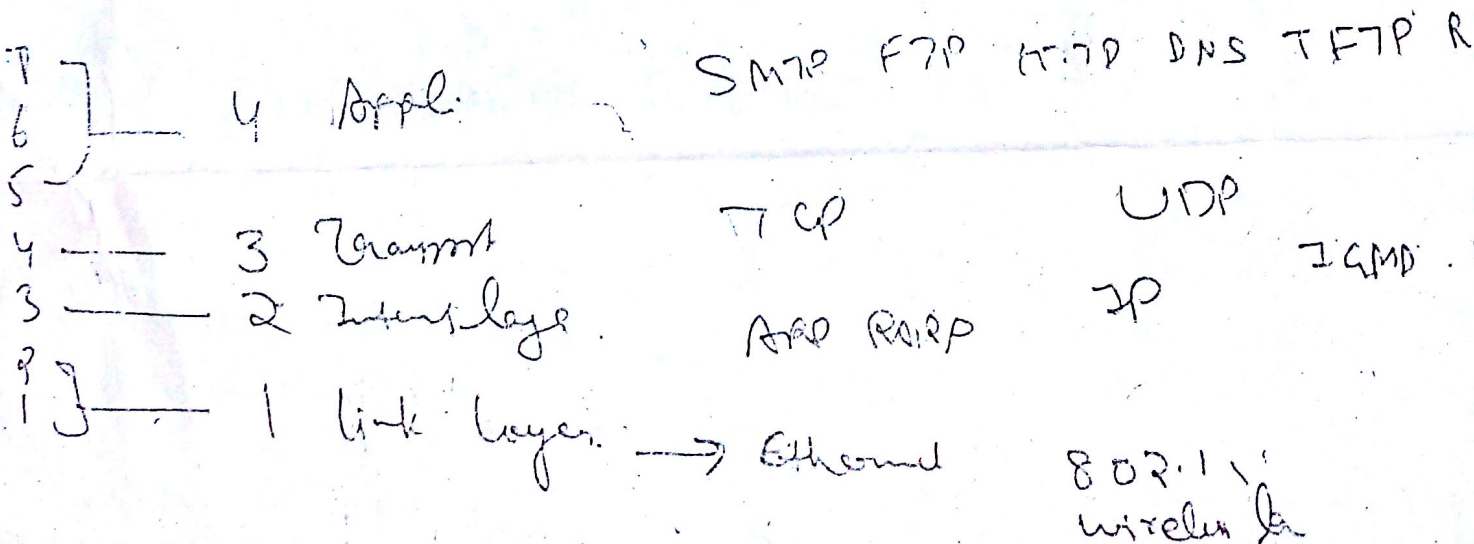 7
6 4 Appl. SMTP FTP HTTP DNS TFTP R
5
4 3 Transport TCP UDP
3 2 Internet layer. ARP RARP IP IGMP.
2
1 1 link layer. → Ethernet 802.11
wireless la